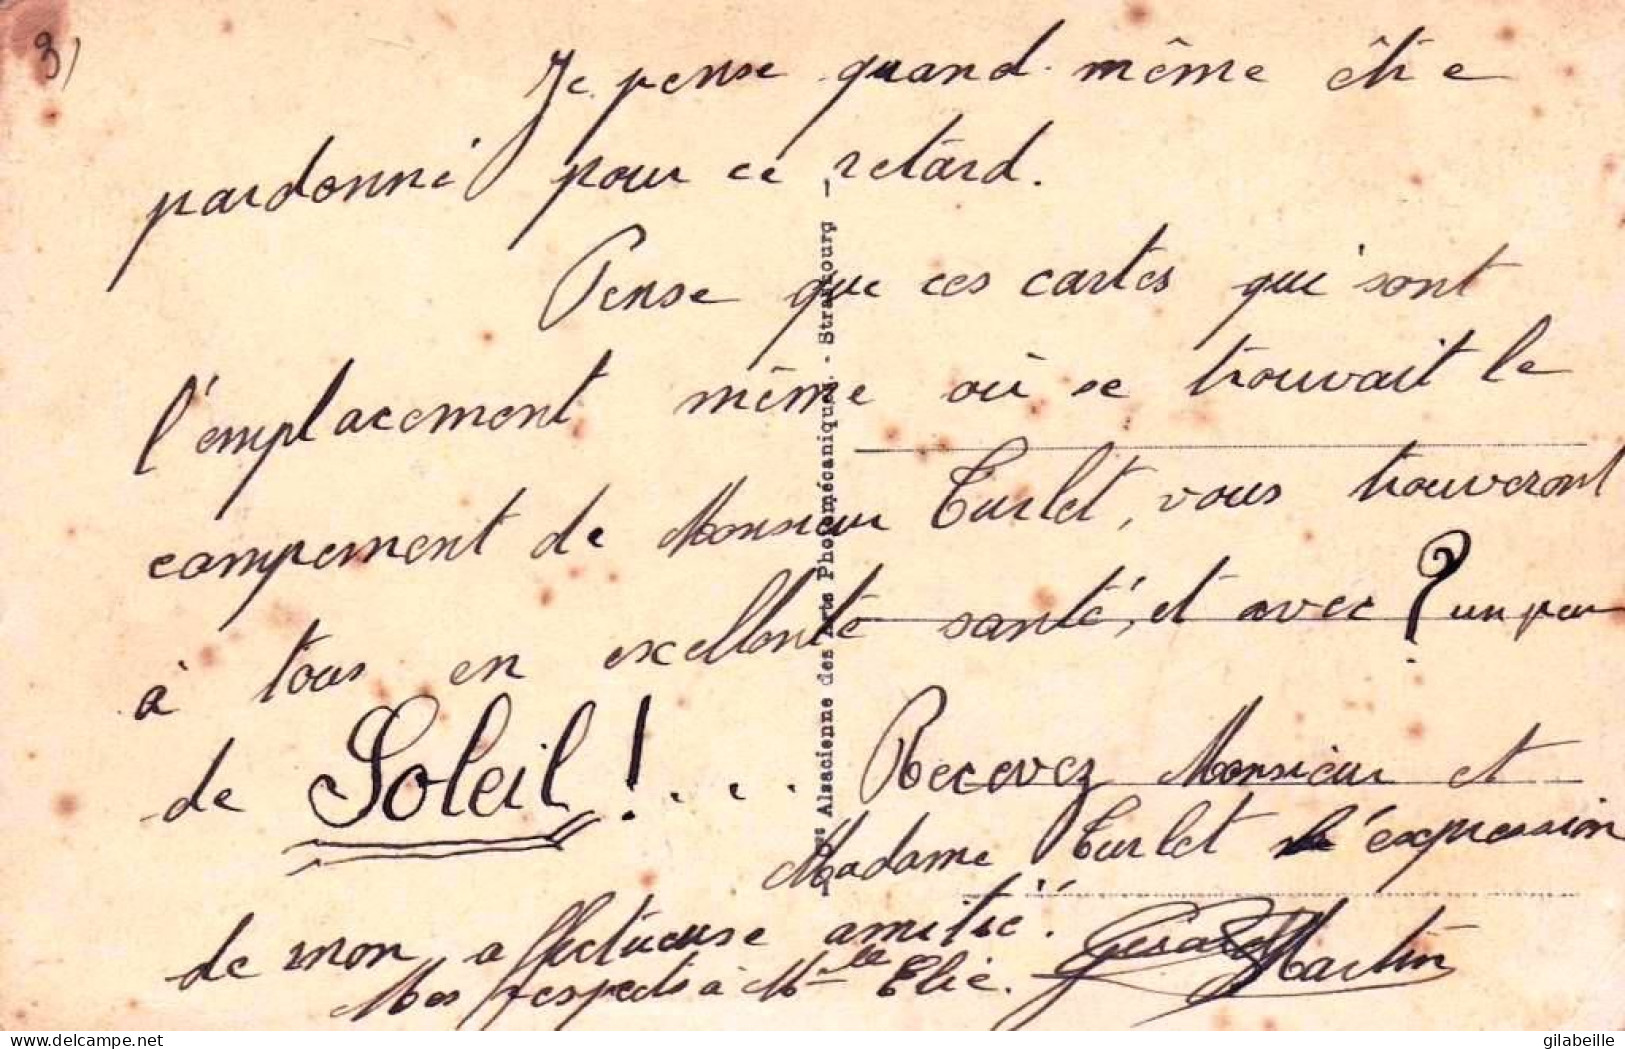 3)
Je pense quand même être
pardonné pour ce retard.
Pense que ces cartes qui sont
l'emplacement même où se trouvait le
campement de Monsieur Turlet, vous trouveront
à tous en excellente santé, et avec ? un peu
de Soleil ! . . . Recevez Monsieur et
Madame Turlet l'expression
de mon affectueuse amitié.
Mes respects à Mlle Elie. Gerard Martin
Alsacienne des Arts Photomécaniques. - Strasbourg
delcampe.net
gilabeille